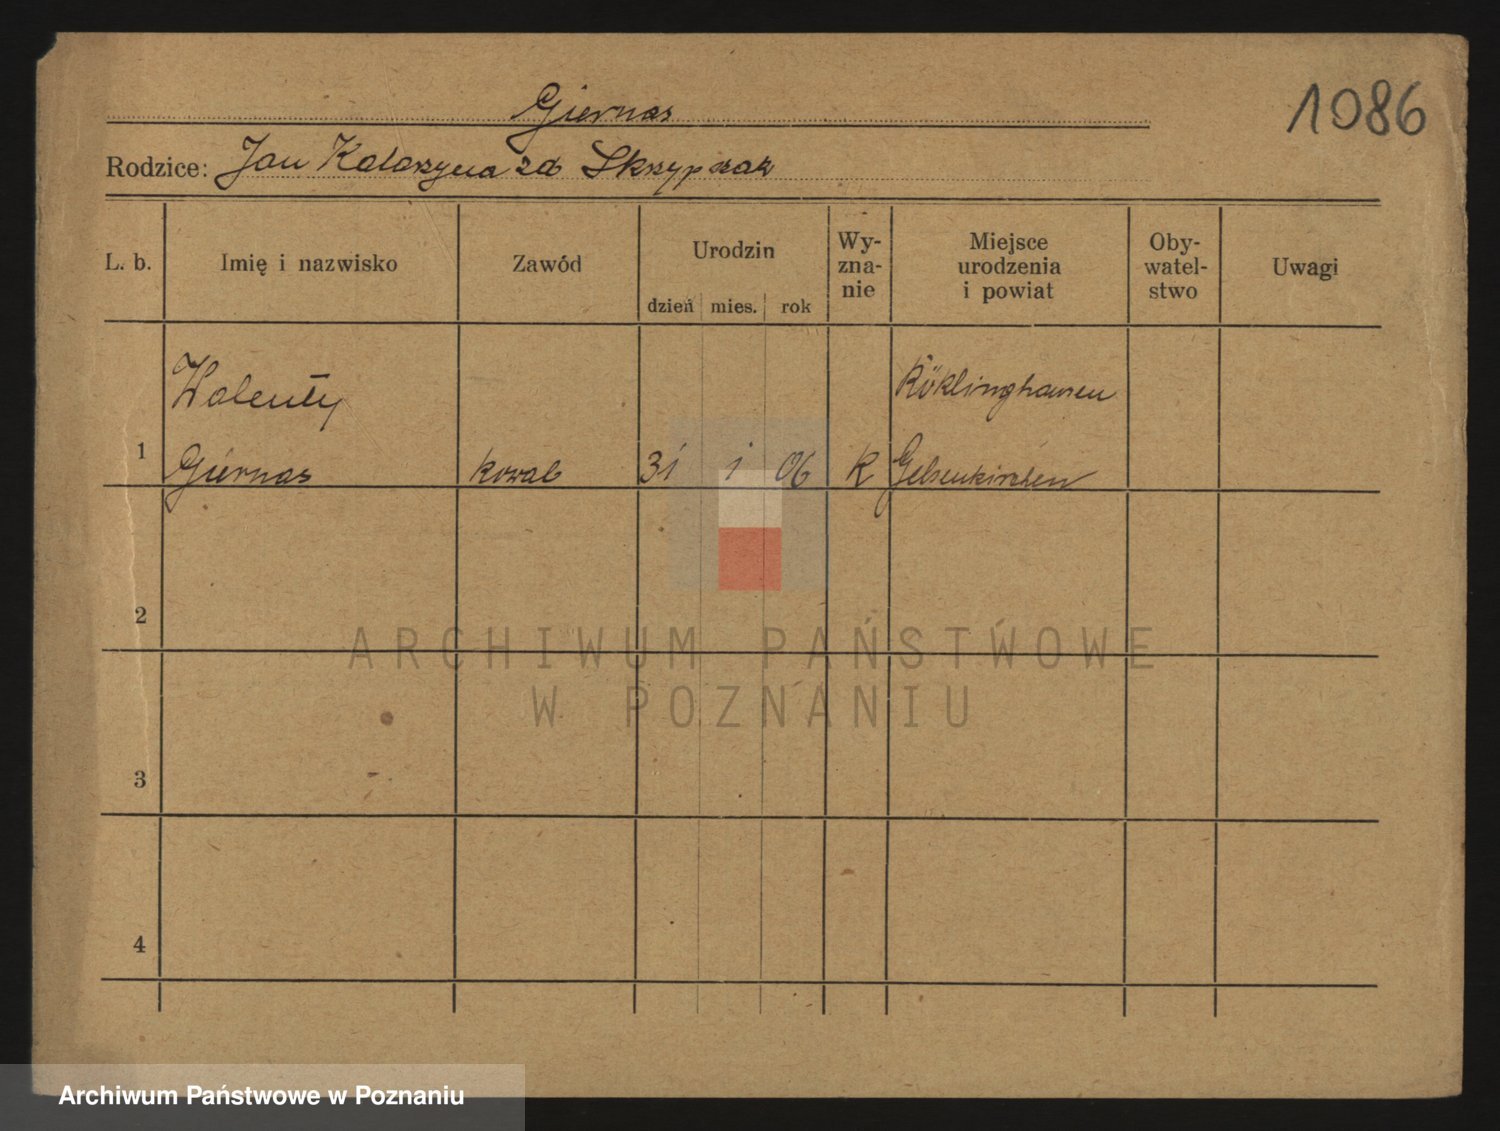 Giernas
1086
Rodzice: Jan Katarzyna zd Skrzypczak
L. b. Imię i nazwisko Zawód Urodzin dzień mies. rok Wy-zna-nie Miejsce urodzenia i powiat Oby-watel-stwo Uwagi
Walenty Röklinghausen
1 Giernas kowal 31 1 06 R Gelsenkirchen
2
ARCHIWUM PAŃSTWOWE
W POZNANIU
3
4
Archiwum Państwowe w Poznaniu